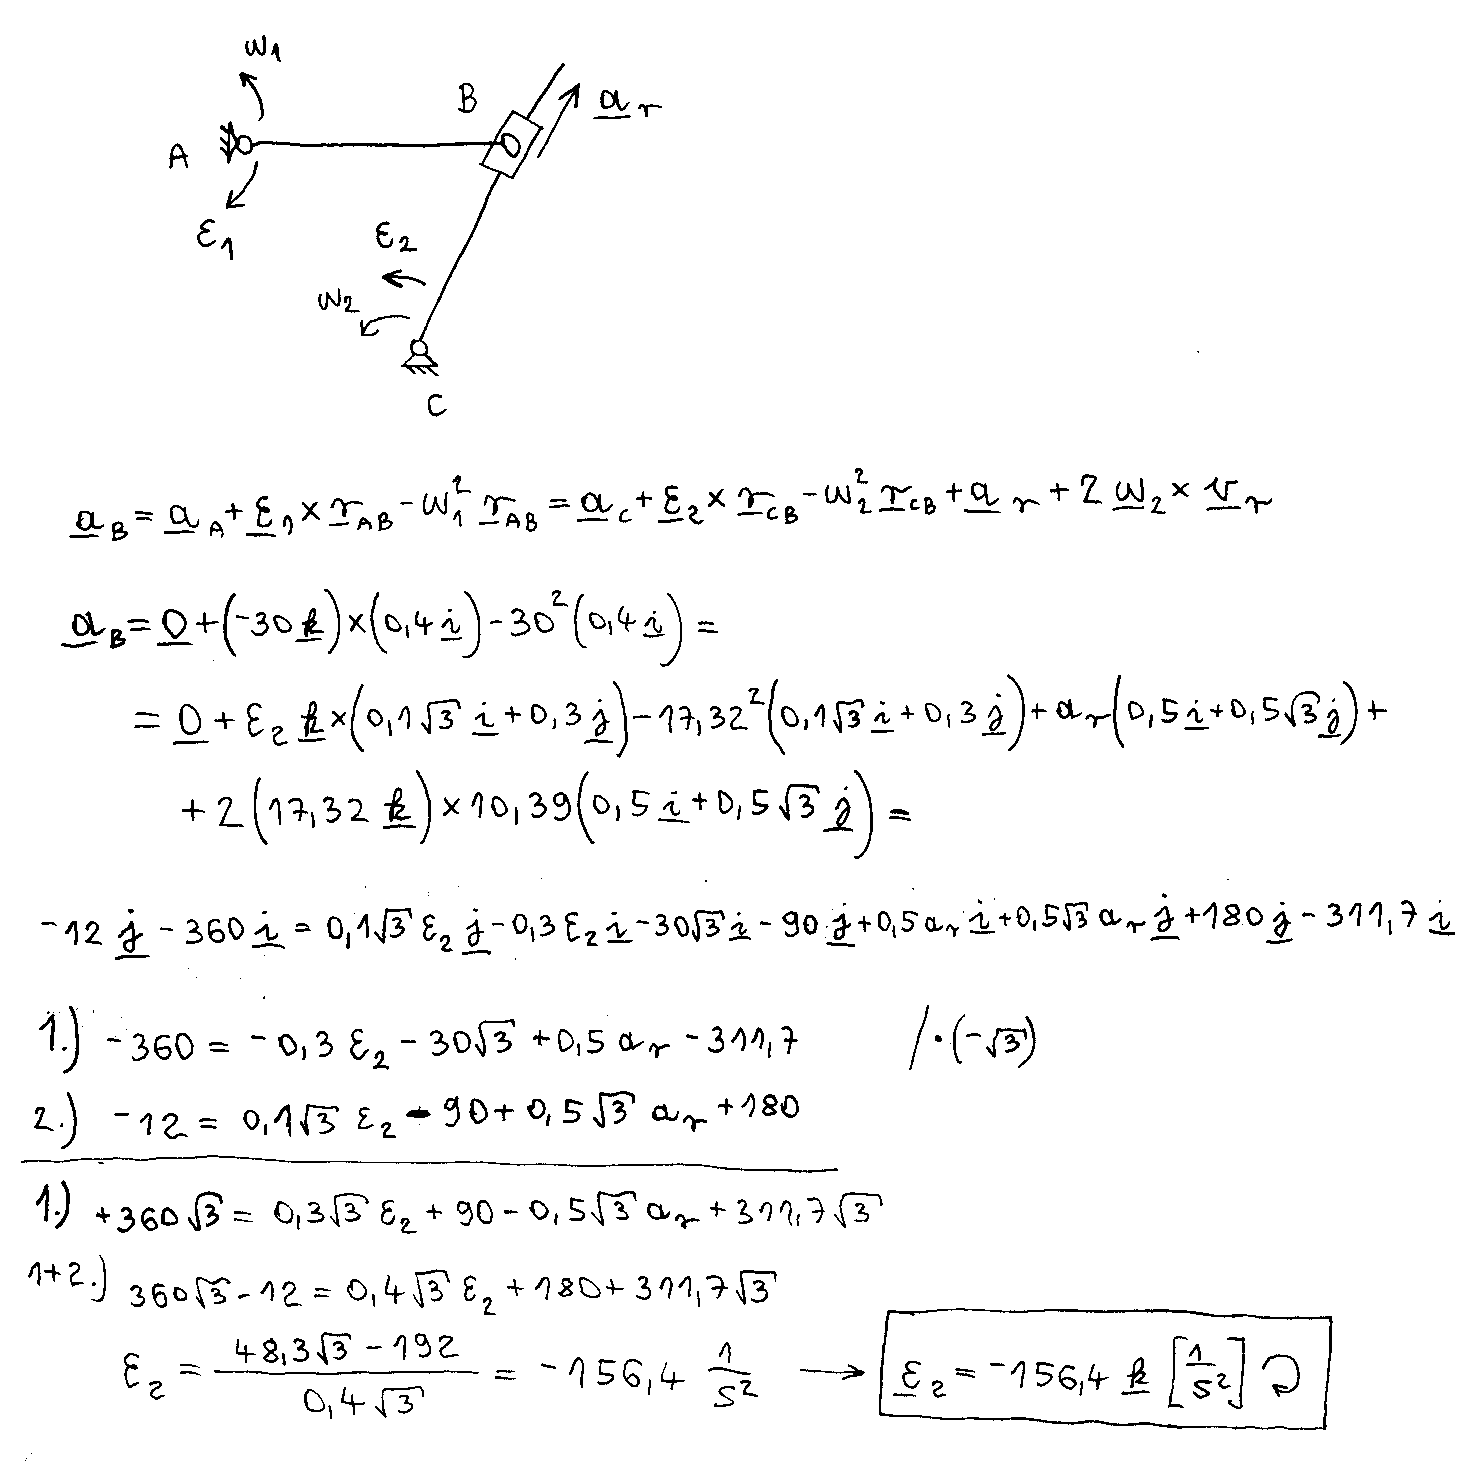 ω₁
B
a_r
A
ε₁
ε₂
ω₂
C
a_B = a_A + ε₁ × r_AB - ω₁² r_AB = a_C + ε₂ × r_CB - ω₂² r_CB + a_r + 2 ω₂ × v_r
a_B = 0 + (-30 k) × (0,4 i) - 30² (0,4 i) =
= 0 + ε₂ k × (0,1√3 i + 0,3 j) - 17,32² (0,1√3 i + 0,3 j) + a_r (0,5 i + 0,5√3 j) +
+ 2 (17,32 k) × 10,39 (0,5 i + 0,5 √3 j) =
-12 j - 360 i = 0,1√3 ε₂ j - 0,3 ε₂ i - 30√3 i - 90 j + 0,5 a_r i + 0,5√3 a_r j + 180 j - 311,7 i
1.) -360 = -0,3 ε₂ - 30√3 + 0,5 a_r - 311,7 / · (-√3)
2.) -12 = 0,1√3 ε₂ - 90 + 0,5 √3 a_r + 180
1.) +360 √3 = 0,3√3 ε₂ + 90 - 0,5√3 a_r + 311,7 √3
1+2.) 360√3 - 12 = 0,4 √3 ε₂ + 180 + 311,7 √3
ε₂ = (48,3√3 - 192) / (0,4 √3) = -156,4 1/s² → ε₂ = -156,4 k [1/s²] ↻